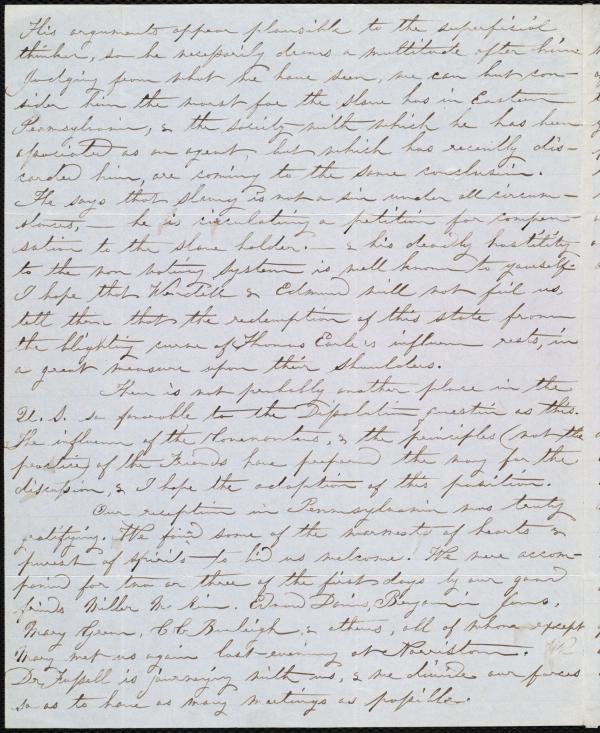 His arguments appear plausible to the superficial
thinker, so he necessarily draws a multitude after him
Judging from what we have seen, we can but con-
sider him the worst foe the slave has in Eastern
Pennsylvania, & the society with which he has been
associated as an agent, but which has recently dis-
carded him, are coming to the same conclusion.
He says that slavery is not a sin under all circum-
stances, — he is circulating a petition for compen-
sation to the slave holder. — & his deadly hostility
to the non voting system is well known to yourself.
I hope that Wendell & Edmund will not fail us,
tell them that the redemption of this state from
the blighting curse of Thomas Earle's influence rests, in
a great measure upon their shoulders.
There is not probably another place in the
U. S. so favorable to the Dissolution question as this.
The influence of the Covenanters, & the principles (not the
practice) of the Friends have prepared the way for the
discussion, & I hope the adoption of this position.
Our reception in Pennsylvania was truly
gratifying. We found some of the warmest of hearts &
purest of spirits to bid us welcome. We were accom-
panied for two or three of the first days by our good
friends Miller McKim, Edward Davis, Benjamin Jones,
Mary Grew, C C Burleigh, & others, all of whom except
Mary met us again last evening at Norristown.
Dr Fussell is journeying with us, & we divide our forces
so as to have as many meetings as possible.